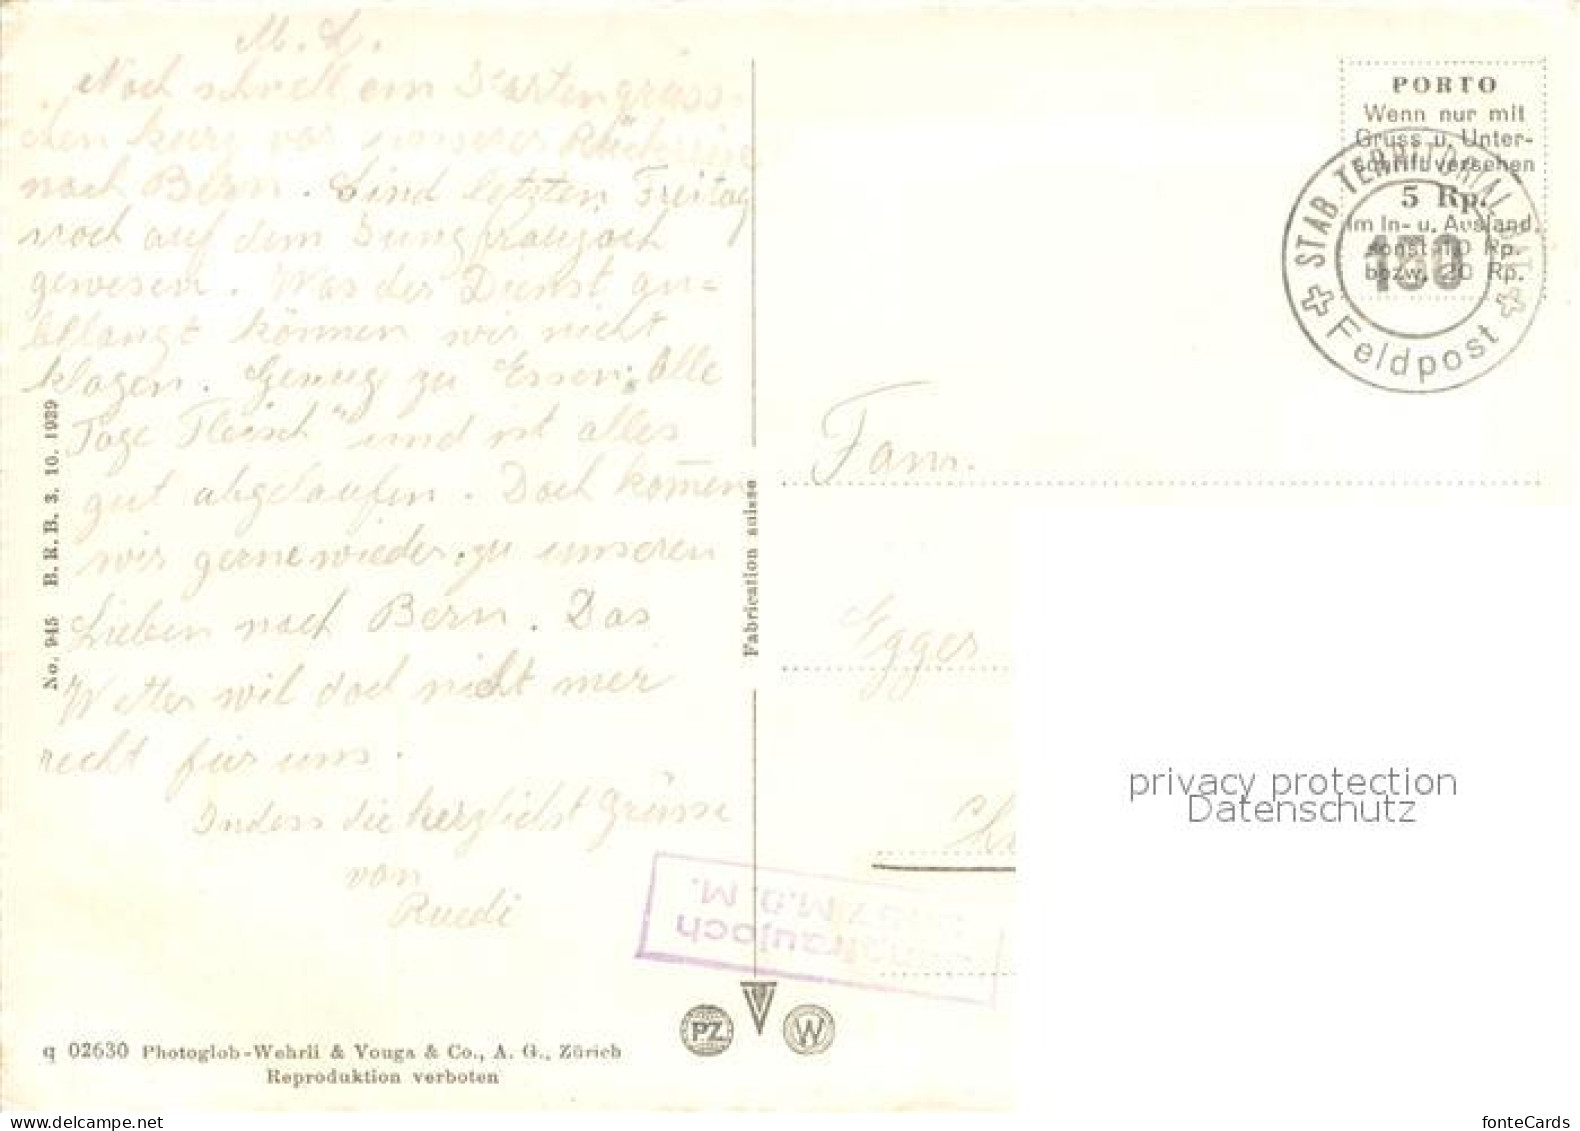 M. L.
Noch schnell ein Kartengrüss-
chen kurz vor unserer Rückreise
nach Bern. Sind letzten Freitag
noch auf dem Jungfraujoch
gewesen. Was der Dienst an-
bllangt können wir nicht
klagen. Genug zu Essen, "Alle
Tage Fleisch" und ist alles
gut abgelaufen. Doch kom̅en
wir gerne wieder zu unseren
Lieben nach Bern. Das
Wetter wil doch nicht mer
recht für uns.
Indess die herzlichst Grüsse
von
Ruedi
No. 945 B. R. B. 3. 10. 1939
Fabrication suisse
q 02630 Photoglob-Wehrli & Vouga & Co., A. G., Zürich
Reproduktion verboten
PZ
W
PORTO
Wenn nur mit
Gruss u. Unter-
schrift versehen
5 Rp.
im In- u. Ausland,
sonst 10 Rp.
bezw. 20 Rp.
STAB TERRITORIAL BAT.
130
Feldpost
Fam.
Egger
Jungfraujoch
M. ü. M.
privacy protection
Datenschutz
fonteCards